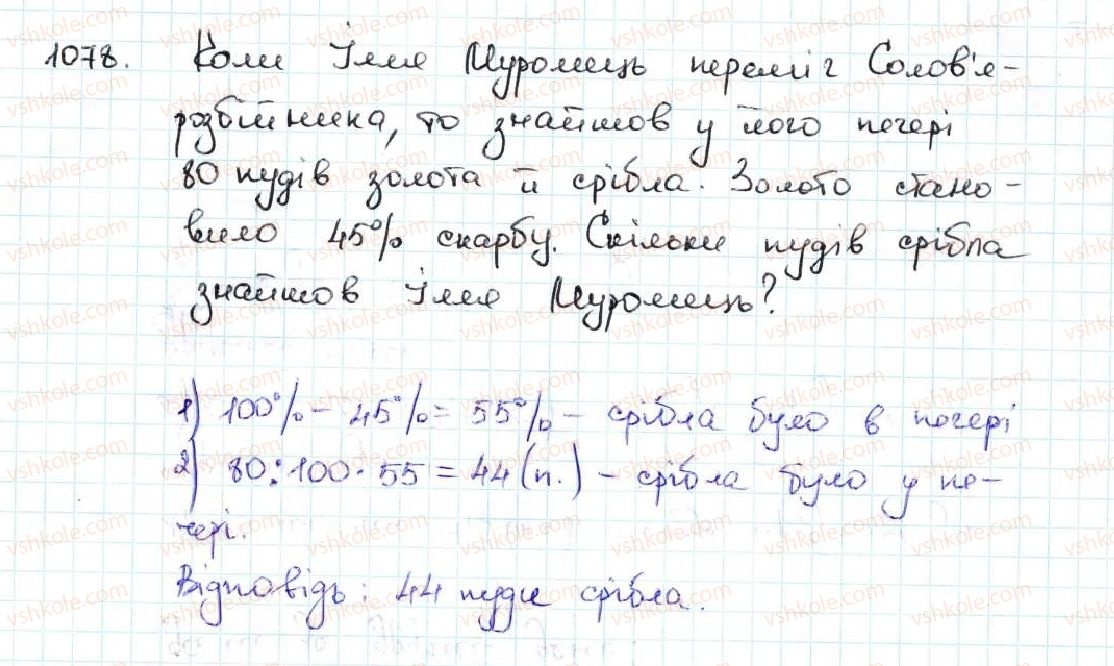 1078. Коли Ілля Муромець переміг Солов'я-
розбійника, то знайшов у його печері
80 пудів золота й срібла. Золото стано-
вило 45% скарбу. Скільки пудів срібла
знайшов Ілля Муромець?
1) 100% - 45% = 55% - срібла було в печері
2) 80:100·55 = 44 (п.) - срібла було у пе-
чері.
Відповідь: 44 пуди срібла.